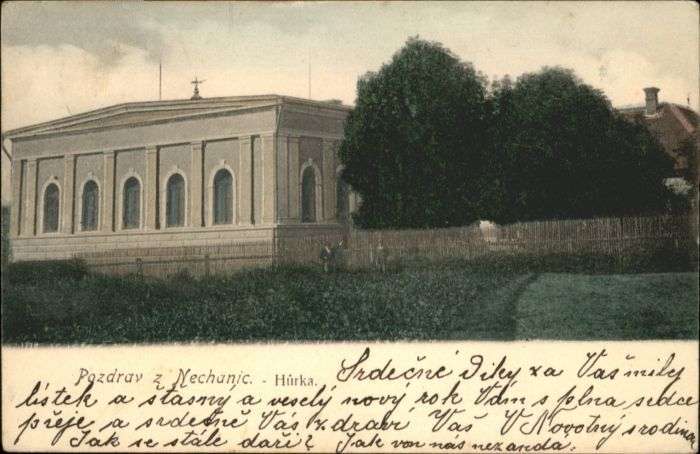 Pozdrav z Nechanic. - Hůrka.
Srdečné Diky za Vaš milej
lístek a stasný a veselý nový rok Vám s plna sedce
přeje a srdečně Vás zdraví Vaš V Novotný s rodinou
Jak se stále daří? Jak von nás